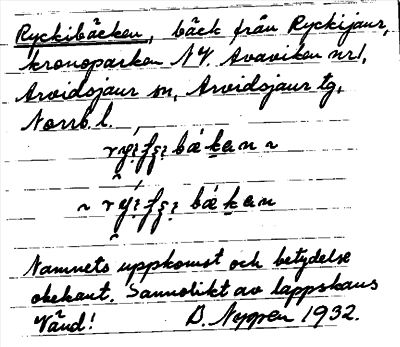 Ryckibäcken, bäck från Ryckijaur,
kronoparken N V. Avaviken nr 1,
Arvidsjaur sn, Arvidsjaur tg,
Norrb. l.
Namnets uppkomst och betydelse
obekant. Sannolikt av lappskans
Vänd! D. Nygren 1932.